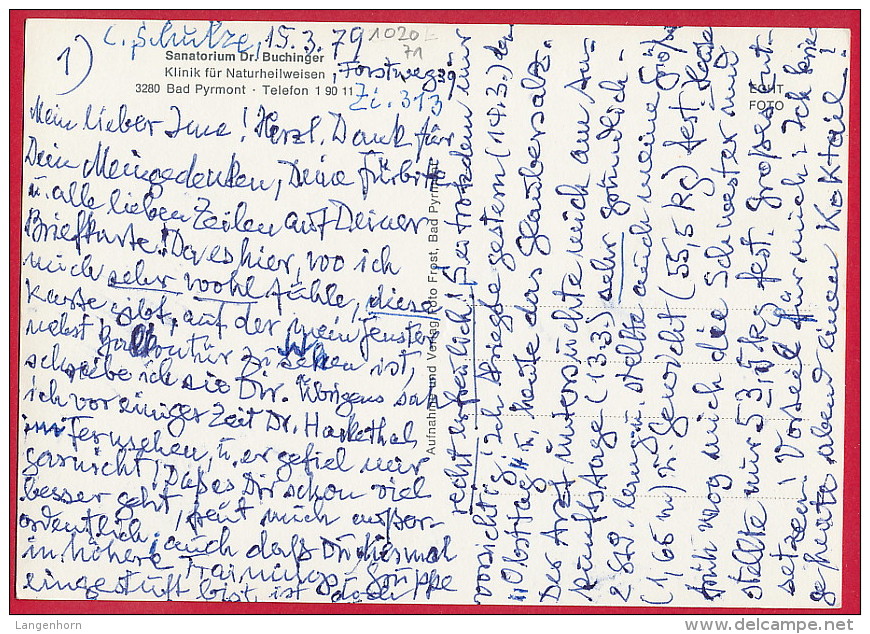 1)
C. Schulze, 15.3.79
1020
71
Sanatorium Dr. Buchinger
Klinik für Naturheilweisen, Forstweg 39
3280 Bad Pyrmont · Telefon 1 90 11
Zi. 313
ECHT
FOTO
Mein lieber Jme! Herzl. Dank für
Dein Meingedenken, Deine Fürbitte
u. alle lieben Zeilen auf Deiner
Briefkarte! Da es hier, wo ich
mich sehr wohl fühle, diese
Karte gibt, auf der mein Fenster
nebst Balkontür zu sehen ist,
schreibe ich sie Dir. Übrigens sah
ich vor einiger Zeit Dr. Hackethal
im Fernsehen, u. er gefiel mir
garnicht! Daß es Dir schon viel
besser geht, freut mich außer-
ordentlich, auch daß Du diesmal
in höhere Trainings-Gruppe
eingestuft bist, ist doch
Aufnahme und Verlag Foto Frost, Bad Pyrmont
recht erfreulich! Sei trotzdem nur
vorsichtig! Ich kriegte gestern (14.3.) den
"Obsttag" u. heute das Glaubersalz.
Der Arzt untersuchte mich am An-
kunftstage (13.3.) sehr gründlich -
2 Std. lang u. stellte auch meine Größe
(1,66 m) u. Gewicht (55,5 kg) fest. Heute
früh wog mich die Schwester und
stellte nur 53,5 kg fest. Großes Ent-
setzen! Vorteil für mich: Ich kriegte
heute abend einen Koktail!
Langenhorn
www.delcampe.net